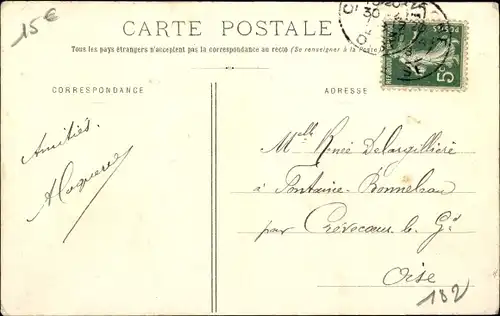 15€
CARTE POSTALE
Tous les pays étrangers n'acceptent pas la correspondance au recto (Se renseigner à la Poste)
CORRESPONDANCE
ADRESSE
Amitiés.
Melle Renée Delargillière
à Fontaine-Bonneleau
par Crèvecœur le Gd
Oise
182